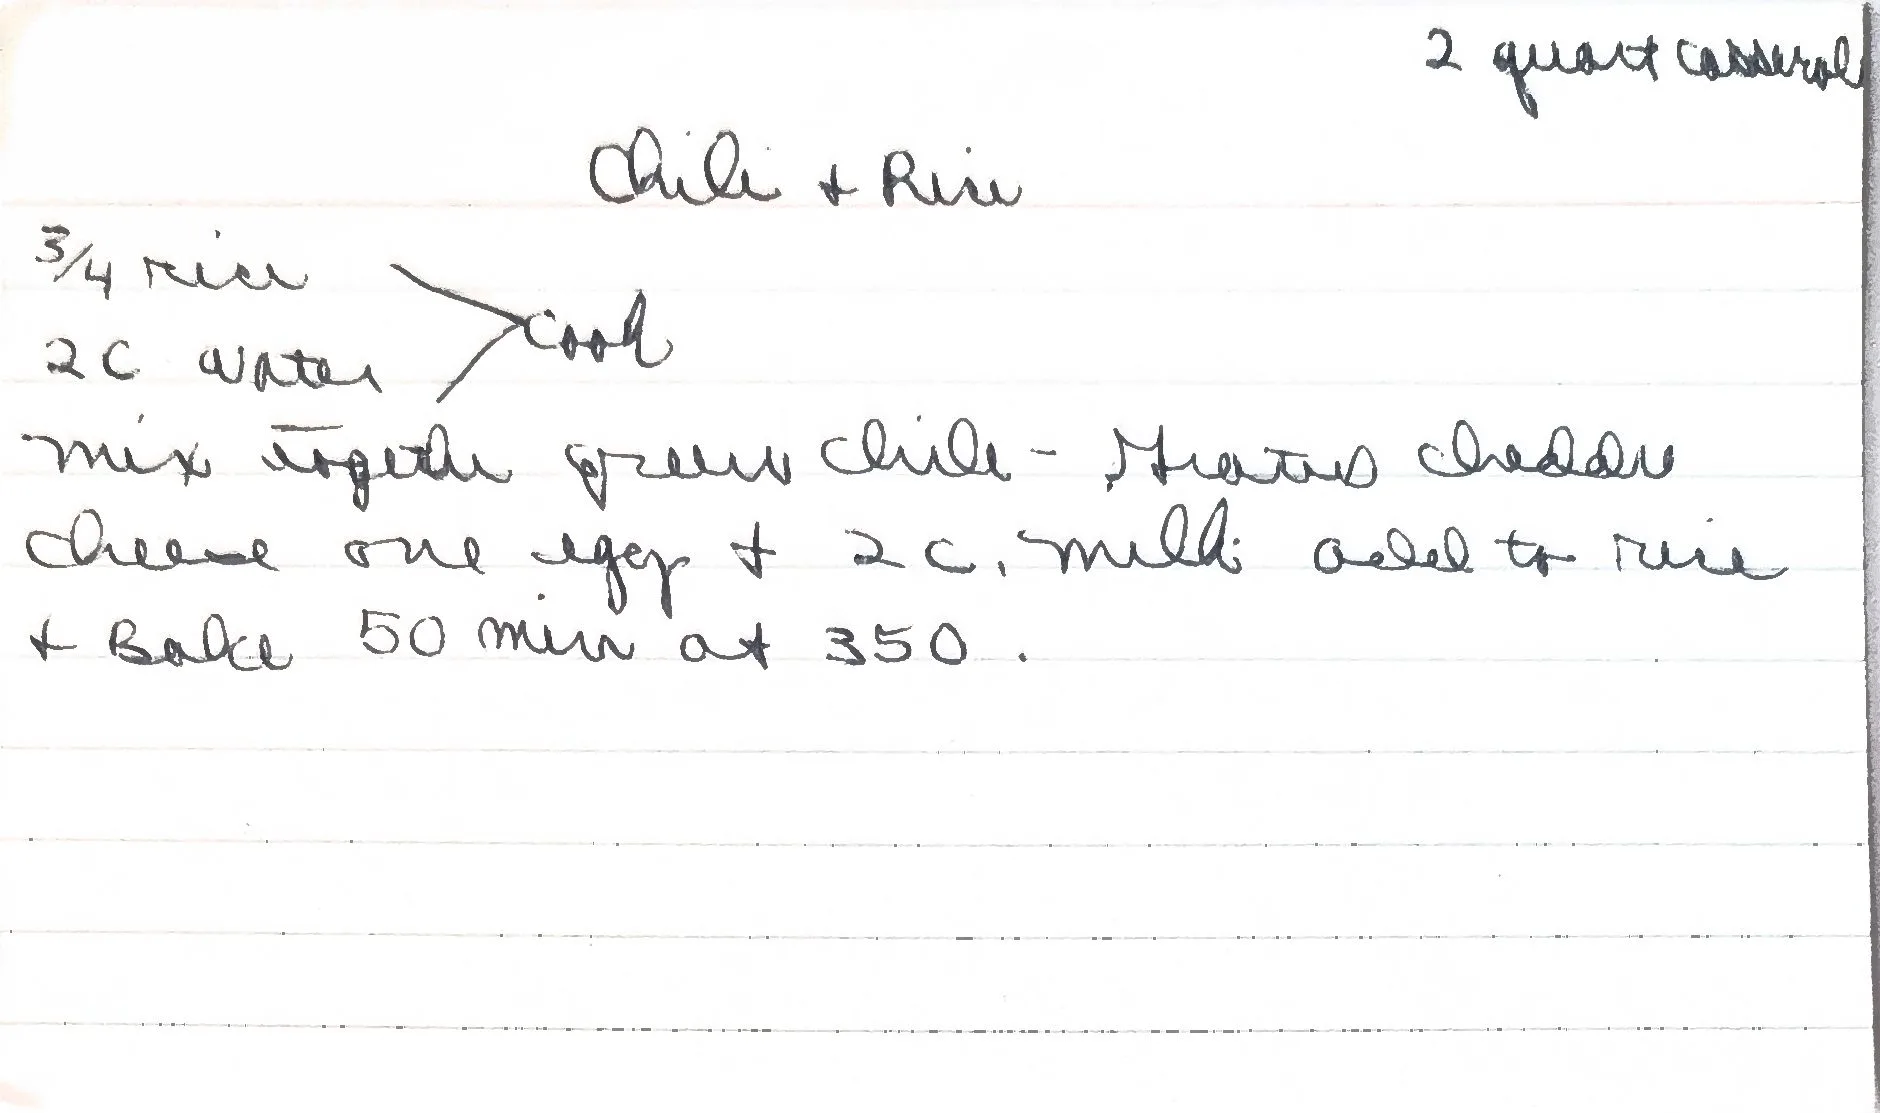 2 quart casserol
Chili + Rice
3/4 rice
2 C water
cook
mix together green chili - Grated cheddar
cheese one egg + 2 c. milk add to rice
+ Bake 50 min at 350.